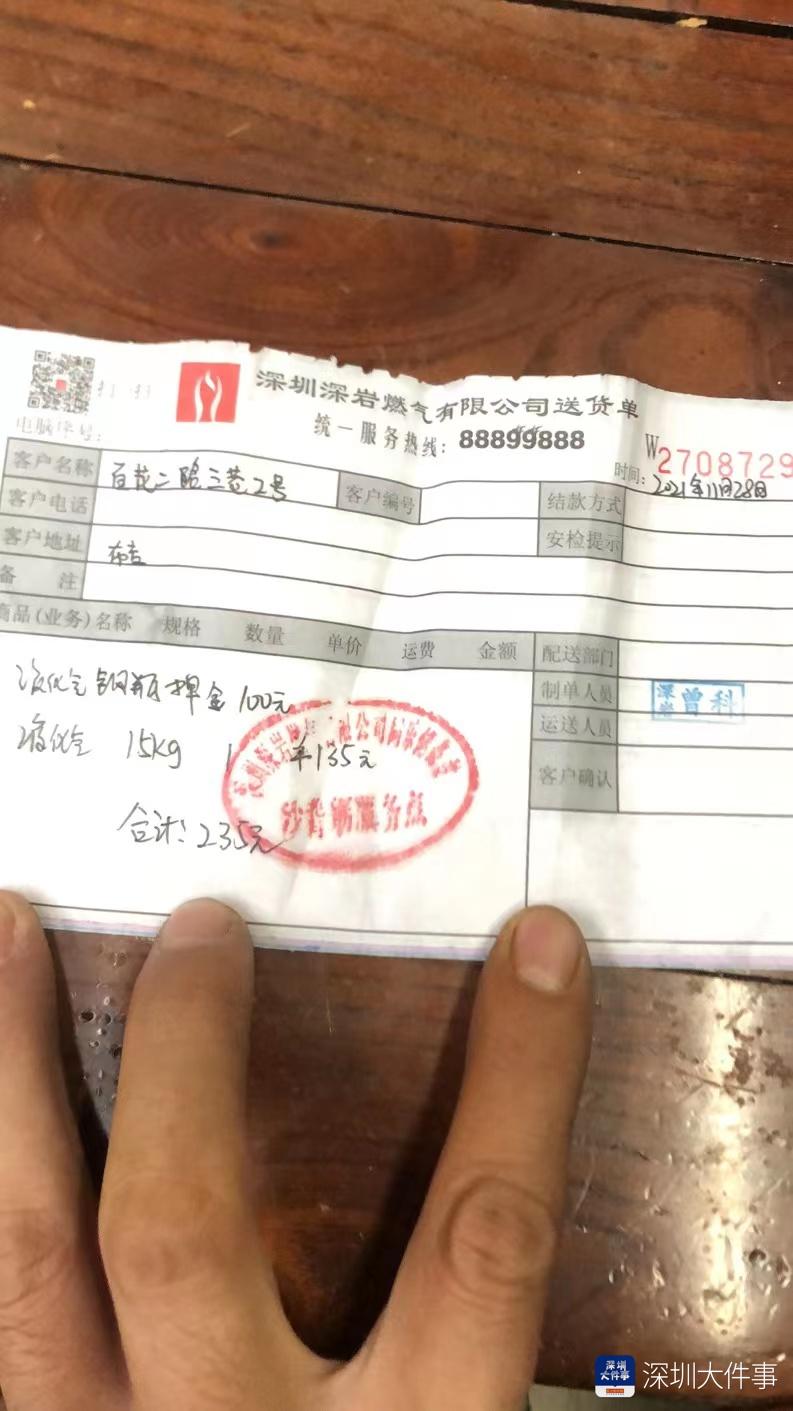 扫一扫
深圳深岩燃气有限公司送货单
统一服务热线：88899888
电脑序号：
W2708729
时间：2021年11月28日
客户名称 百花二路三巷2号 客户编号 结款方式
客户电话
安检提示
客户地址 布吉
备 注
商品(业务)名称 规格 数量 单价 运费 金额 配送部门
液化气钢瓶押金 100元
制单人员 深岩 曾科
运送人员
液化气 15kg 1 ¥135元
客户确认
服务点
合计：235元
深圳大件事
深圳大件事